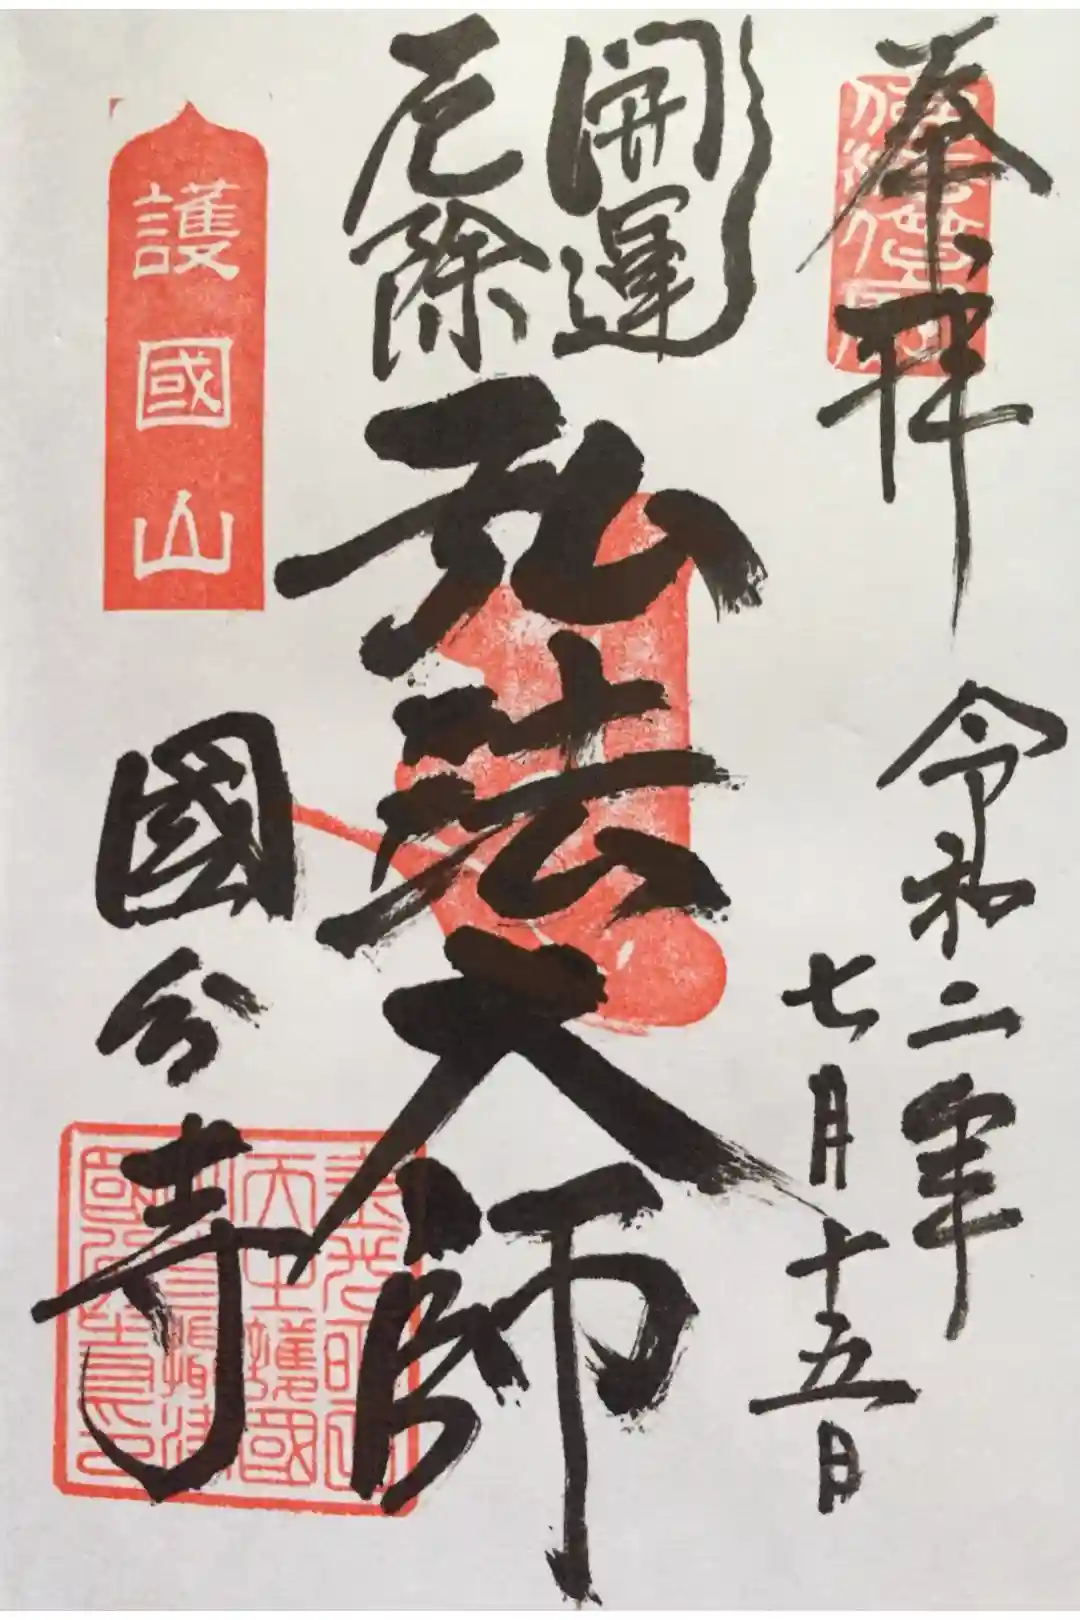 奉拝
令和二年
七月十五日
開運
厄除
弘法大師
護國山
國分寺